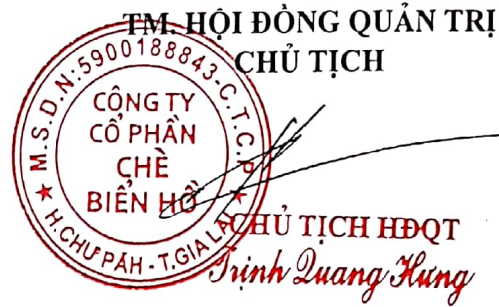 TM. HỘI ĐỒNG QUẢN TRỊ
CHỦ TỊCH
M.S.D.N:5900188843-C.T.C.P
CÔNG TY
CỔ PHẦN
CHÈ
BIỂN HỒ
H.CHƯPĂH - T.GIA LAI
CHỦ TỊCH HĐQT
Trịnh Quang Hưng